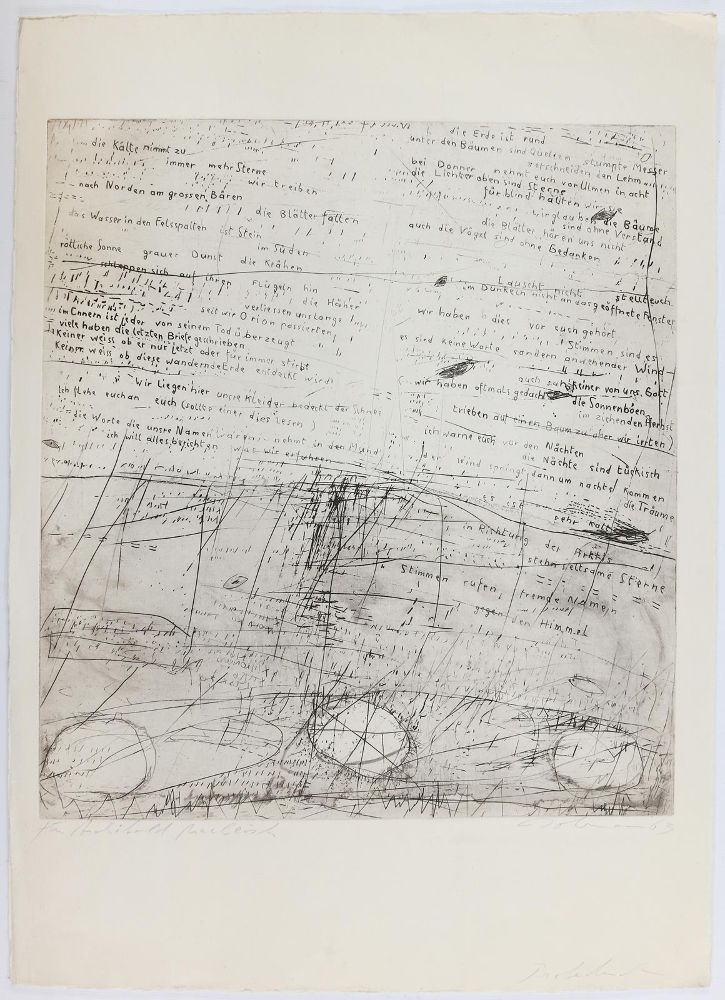 die Kälte nimmt zu
immer mehr Sterne
wir treiben
nach Norden am grossen Bären
die Blätter fallen
das Wasser in den Felsspalten ist Stein
im Süden
rötliche Sonne grauer Dunst die Krähen
schleppen sich auf ihren Flügeln hin
die Häher
verliessen uns lange
seit wir Orion passierten
im Innern ist jeder von seinem Tod überzeugt
viele haben die letzten Briefe geschrieben
Keiner weiss ob er nur jetzt oder für immer stirbt
Keiner weiss ob diese wandernde Erde entdeckt wird
Wir Liegen hier unsre Kleider bedeckt der Schnee
Ich flehe euch an euch (sollte einer dies Lesen)
die Worte die unsre Namen waren nehmt in den Mund
ich will alles berichten was wir erfuhren
die Erde ist rund
unter den Bäumen sind Quellen stumpfe Messer
zerschneiden den Lehm
bei Donner nehmt euch vor Ulmen in acht
die Lichter oben sind Sterne
für blind halten wir sie
wir glauben die Bäume
sind ohne Verstand
die Blätter hören uns nicht
auch die Vögel sind ohne Gedanken
Lauscht nicht stellt euch
im Dunkeln nicht an das geöffnete Fenster
wir haben dies vor euch gehört
Stimmen sind es
es sind keine Worte sondern Wind
auch zuhörte keiner von uns. Gott
(wir haben oftmals gedacht die Sonnenböen
im ziehenden Herbst
trieben auf einen Baum zu aber wir irrten)
ich warne euch vor den Nächten
die Nächte sind tückisch
der Wind springt dann um nachts kommen
die Träume
es ist sehr kalt
in Richtung der Arktis
stehn seltsame Sterne
Stimmen rufen fremde Namen
gegen den Himmel
63